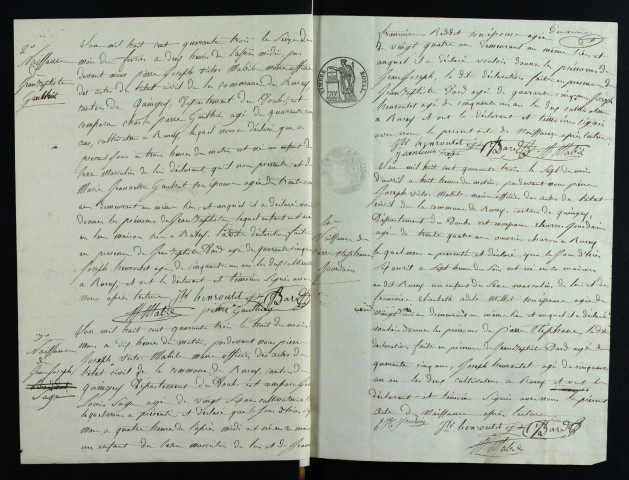 2°
Naissance
Jean Baptiste
Gauthier
L'an mil huit cent quarante trois le Seize du
mois de février a deux heures de l'après midi par
devant nous pierre Joseph victor Mabile maire officier
des actes de l'état civil de la commune de Rurey
canton de quingey Département du Doubs, est
comparu charles pierre Gauthier agé de quarante
ans, cultivateur a Rurey, lequel nous a déclaré, que a
trois heures du matin est né un enfant du
sexe masculin de lui déclarant, qu'il nous présente, et de
Marie son épouse agée de trente
ans demeurant au même lieu, et auquel il a déclaré vouloir
donner les prénoms de Jean Baptiste lequel enfant est né
en leur maison a Rurey. La dite déclaration faite
en présence de Jean Baptiste Bard agé de quarante cinq ans
Joseph henroutet agé de cinquante un ans les deux cultivateurs
a Rurey, et ont le déclarant et témoins signés avec
nous après lecture Jh henroutet Bard
Mabile pierre Gauthier
3°
Naissance
de Jean Joseph
Sage
L'an mil huit cent quarante trois le huit du mois de
mars a dix heures du matin, pardevant nous pierre
Joseph victor Mabile maire officier des actes de
l'état civil de la commune de Rurey canton de
quingey Département du Doubs est comparu Jean
Louis Sage agé de vingt sept ans cultivateur a Rurey
lequel nous a présenté, et déclaré que le jour d'hier sept
mars a quatre heures de l'après midi est né en sa maison
un enfant du sexe masculin de lui et de Jeanne
TIMBRE ROYAL
françoise Reddet son épouse agée
de vingt quatre ans demeurant au même lieu et
auquel il a déclaré vouloir donner les prénoms de
Jean Joseph, la dite déclaration faite en présence de
Jean Baptiste Bard agé de quarante cinq ans Joseph
henroutet agé de cinquante un ans les deux cultivateurs
a Rurey et ont le déclarant et témoins signés
avec nous le présent acte de Naissance après lecture
Jh henroutet Bard
Jean louis Sage Mabile
4°
Naissance de
pierre Stéphane
Jourdain
L'an mil huit cent quarante trois le Sept du mois
d'avril a huit heures du matin, pardevant nous pierre
Joseph victor Mabile maire officier des actes de l'état
civil de la commune de Rurey, canton de quingey,
Département du Doubs est comparu Jourdain
agé de trente quatre ans a Rurey
lequel nous a présenté et déclaré que le jour d'hier
Six avril a Sept heures du soir est né en sa maison
au dit Rurey un enfant du sexe masculin de lui et de
françoise Elisabeth Millet son épouse agée de
vingt ans demeurant au même lieu et auquel il a déclaré
vouloir donner les prénoms de pierre Stéphane la dite
déclaration faite en présence de Jean Baptiste Bard agé de
quarante cinq ans, Joseph henroutet agé de cinquante
un ans les deux cultivateurs a Rurey et ont le
déclarant et témoins signés avec nous le présent
acte de Naissance après lecture
Jourdain Jh henroutet Bard
Mabile